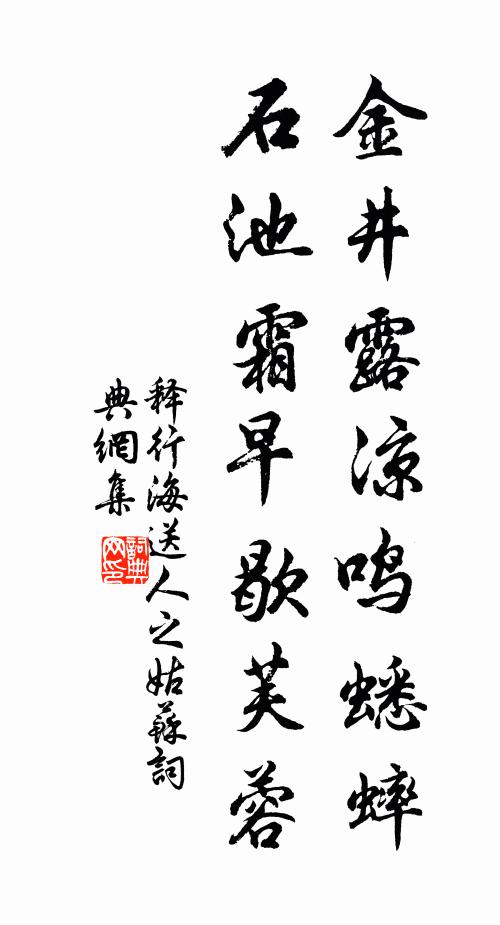 金井露凉鸣蟋蟀
石池霜早歇芙蓉
释行海送人之姑蘇詞
典網集
詞典网印